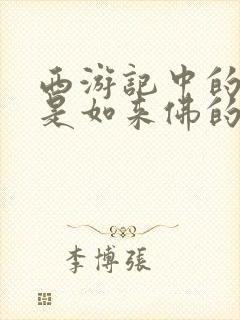 西游記中的
是如来佛的
李博張